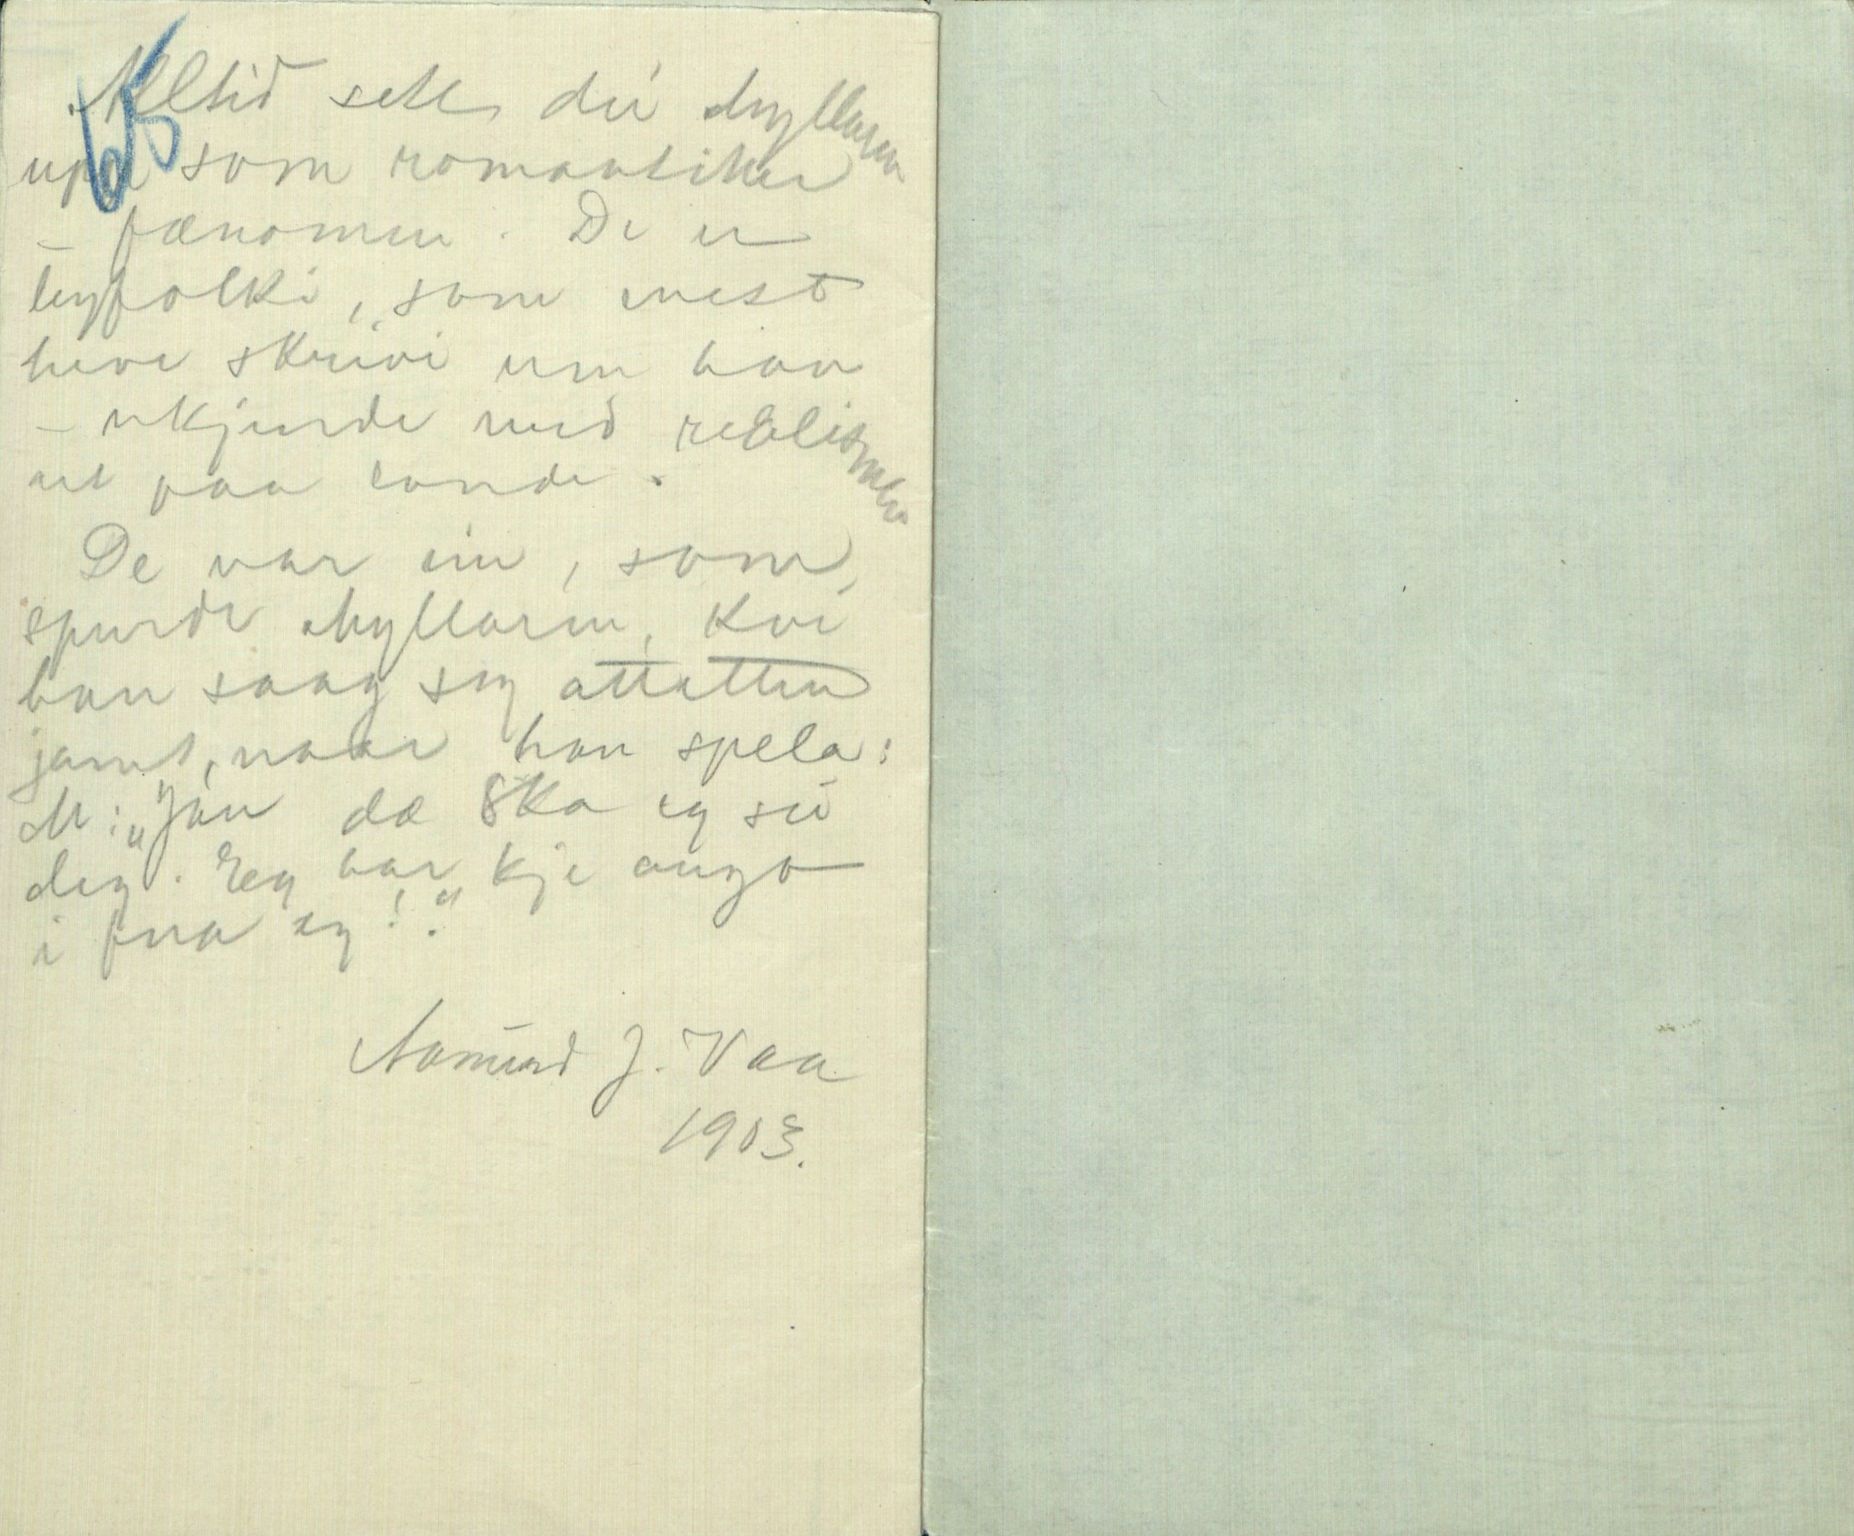 65
Alltid sett dei Myllaren
upp som romantiker
- fænomen. De er
byfolki, som mest
heve skrivi um han
- ukjende med realismen
ut paa lande.
De var ein, som
spurde Myllaren, kvi
han saag seg attatten
jamt, naar han spela:
M: „Jau dæ ska eg sei
deg. Eg har kje augo
i fua eg!“
Aamund J. Vaa
1903.